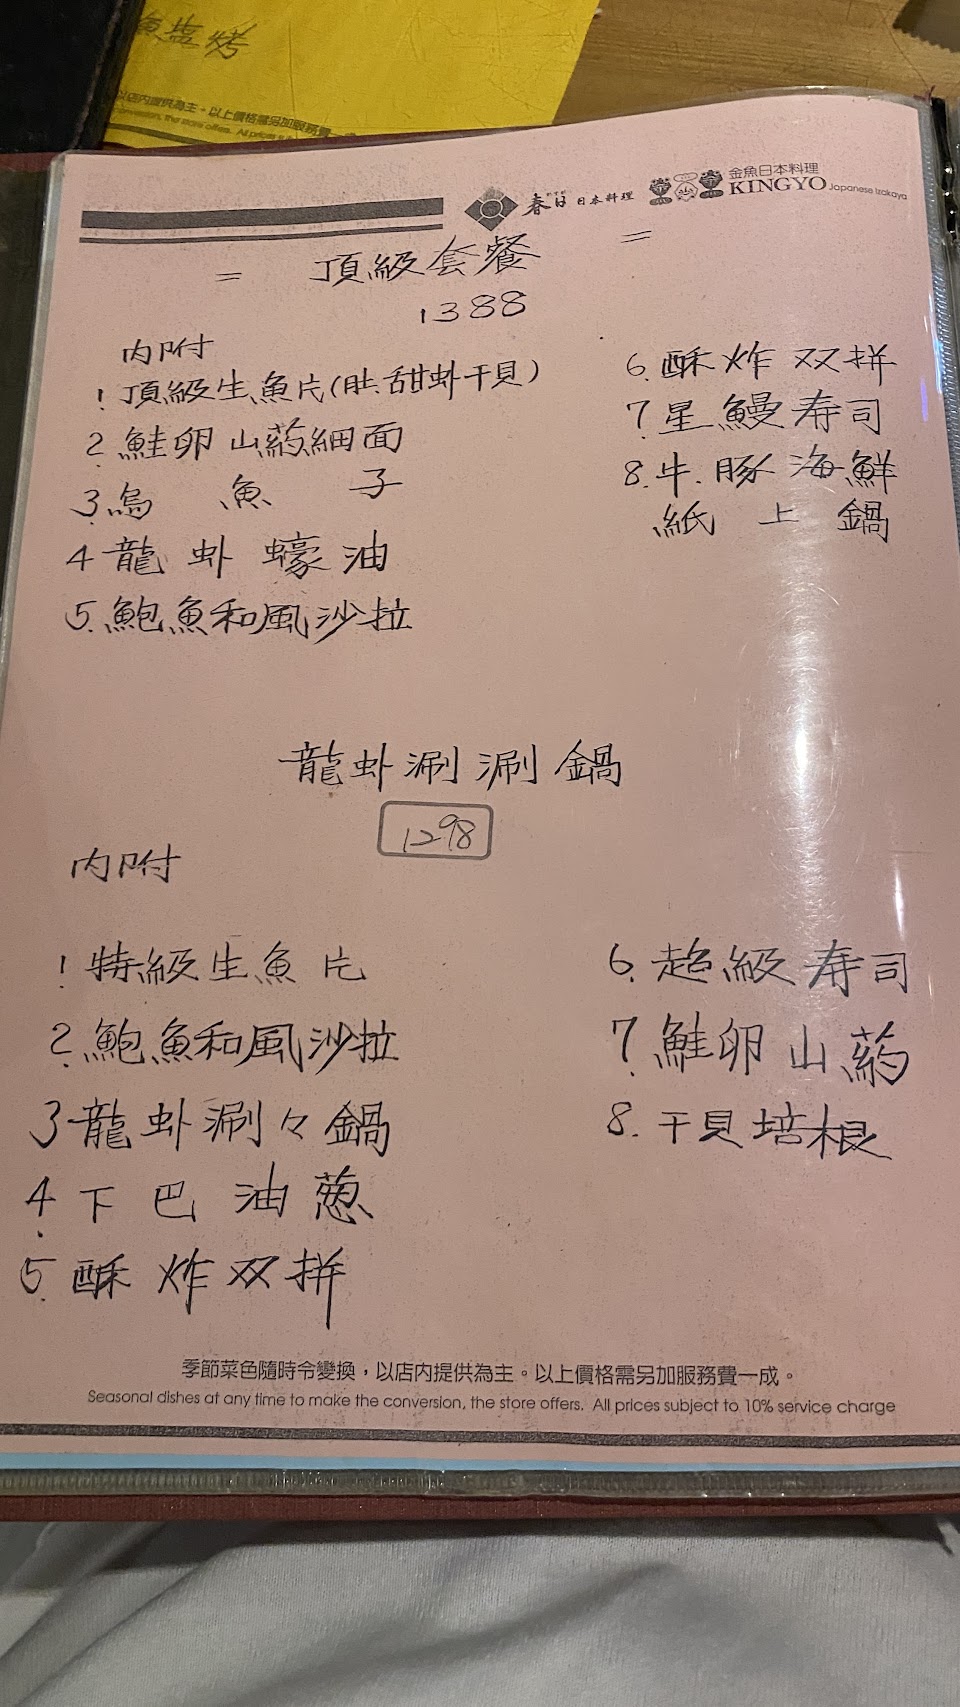 魚塩烤
以店內提供為主。以上價格需另加服務費一成
conversion, the store offers. All prices
春日 かすが 日本料理
金魚日本料理
KINGYO Japanese Izakaya
= 頂級套餐 =
1388
內附
1. 頂級生魚片(肚.甜虾干貝)
2. 鮭卵山药細面
3. 烏魚子
4 龍虾蠔油
5. 鮑魚和風沙拉
6. 酥炸双拼
7. 星鰻寿司
8. 牛.豚海鮮
紙上鍋
龍虾涮涮鍋
1298
內附
1. 特級生魚片
2. 鮑魚和風沙拉
3 龍虾涮々鍋
4. 下巴油葱
5. 酥炸双拼
6. 超級寿司
7. 鮭卵山药
8. 干貝培根
季節菜色隨時令變換，以店內提供為主。以上價格需另加服務費一成。
Seasonal dishes at any time to make the conversion, the store offers. All prices subject to 10% service charge